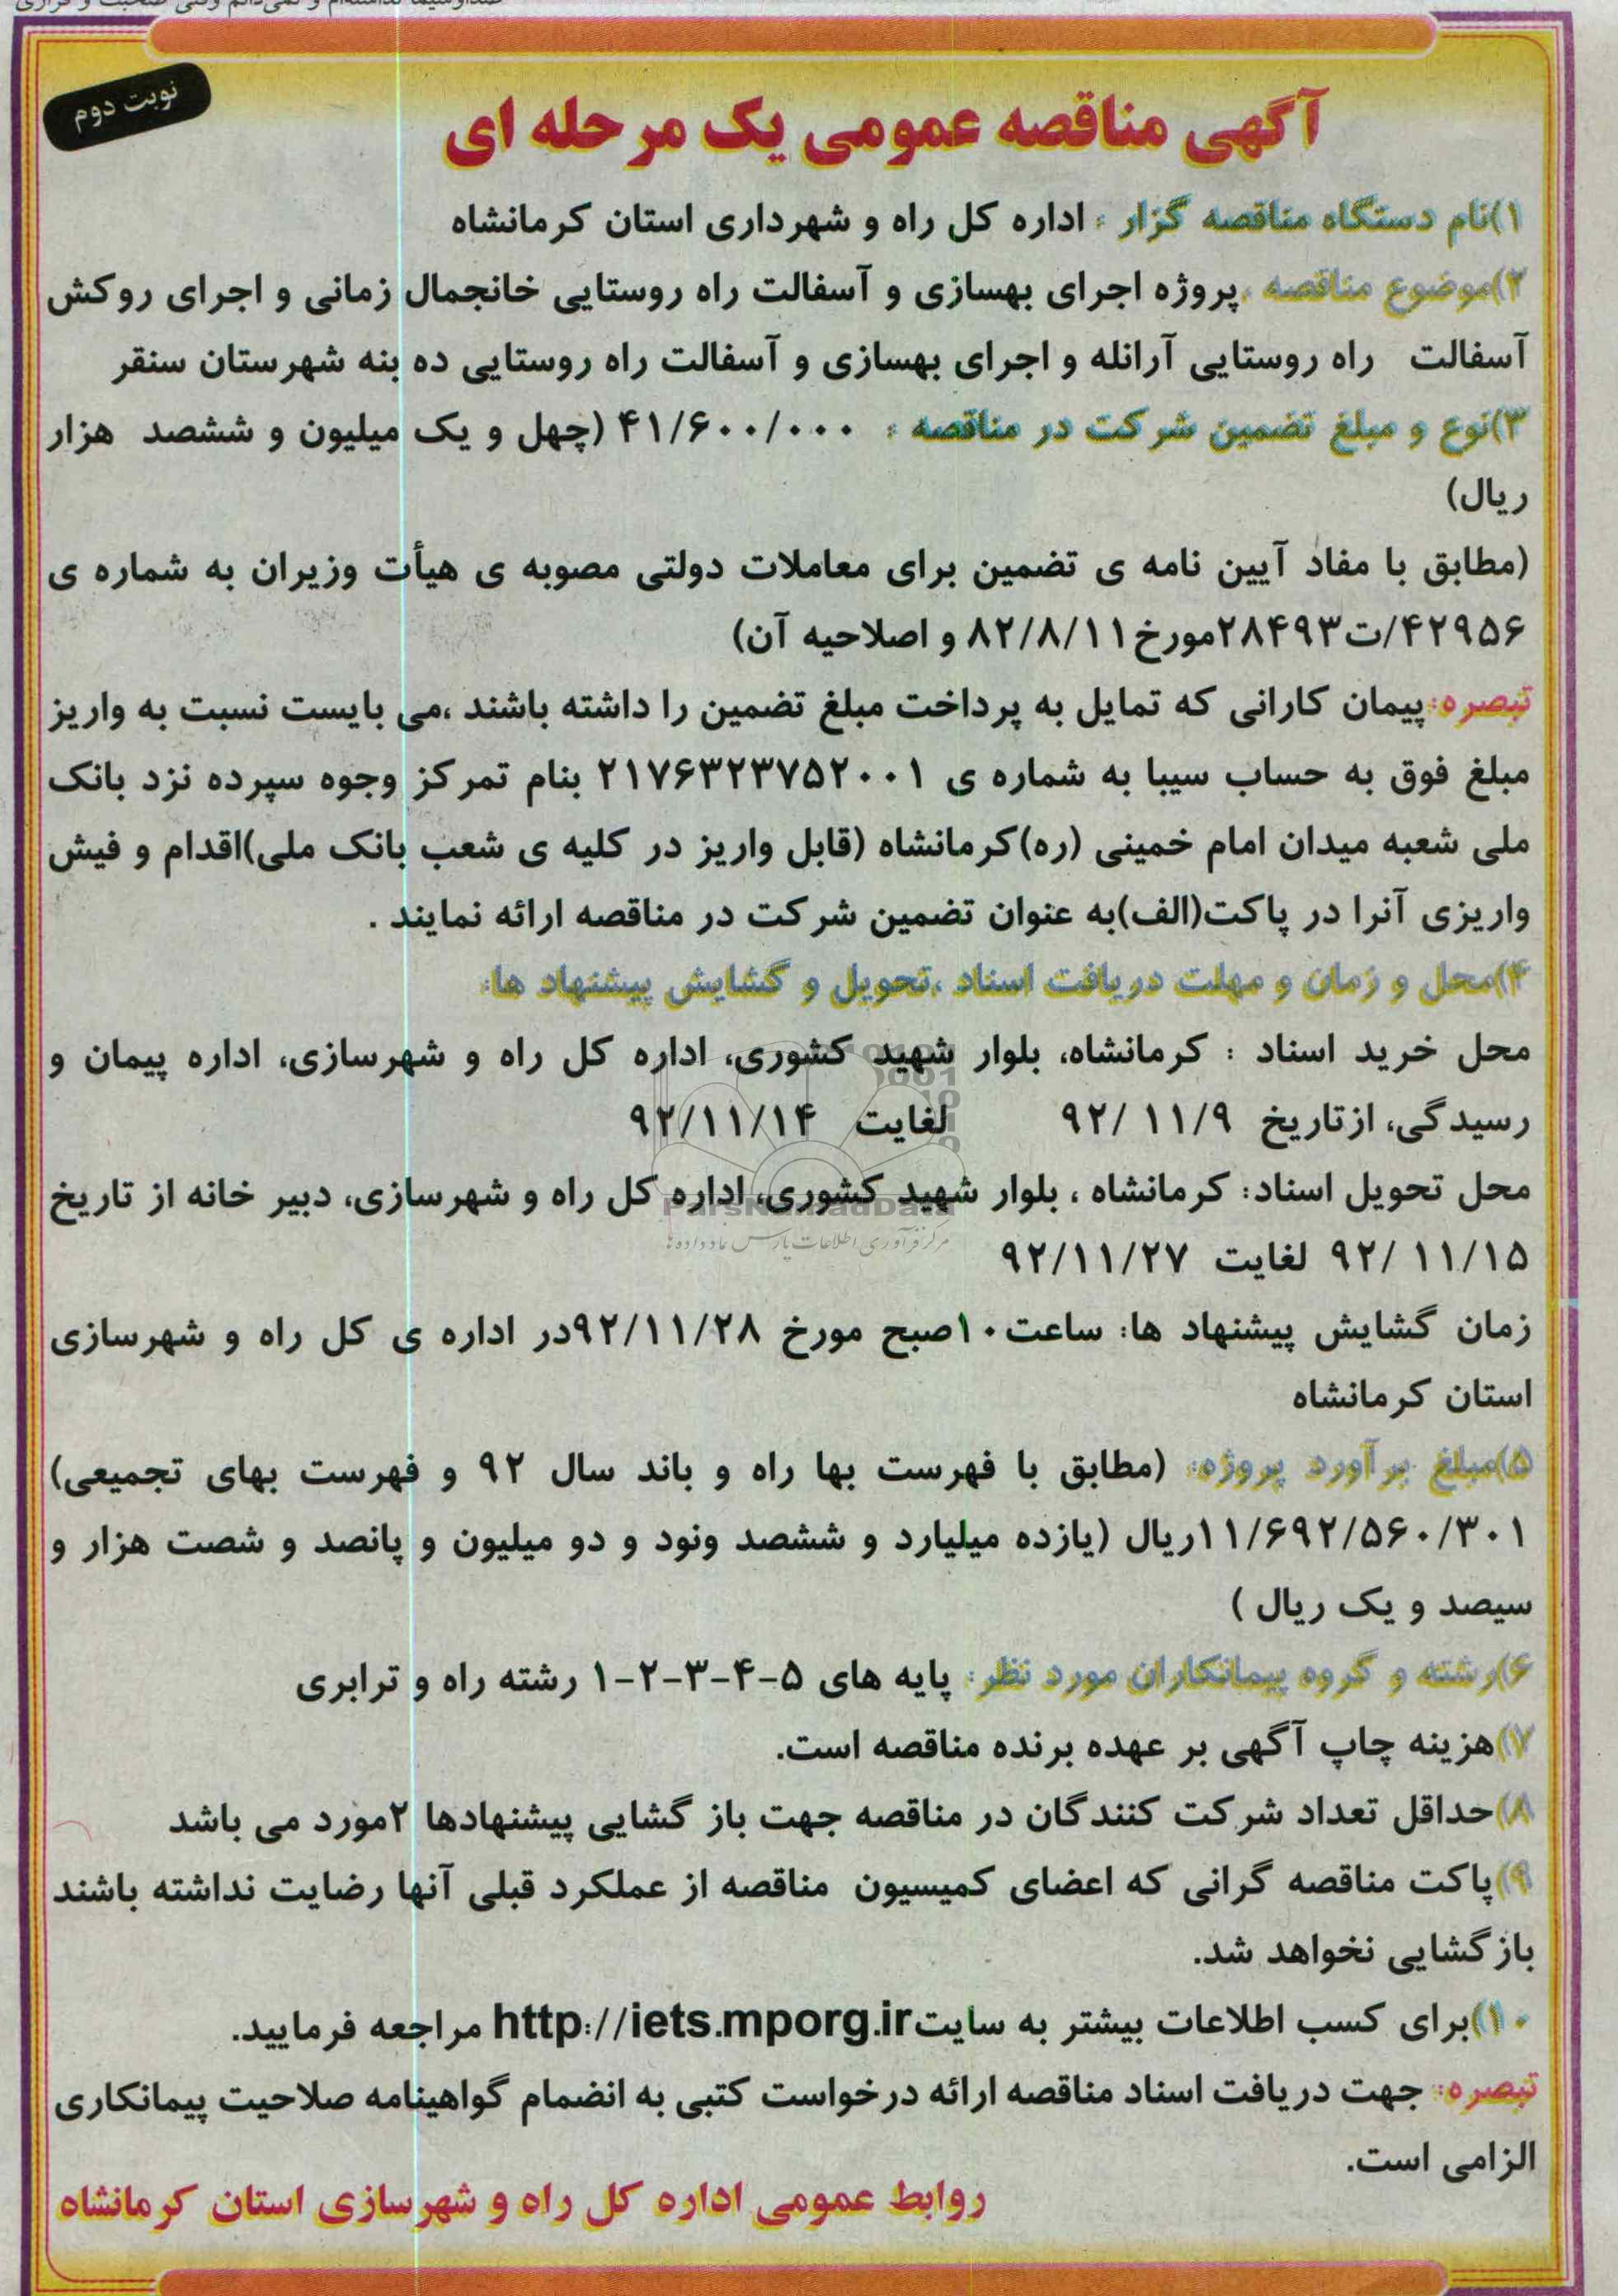 نوبت دوم
آگهی مناقصه عمومی یک مرحله ای
۱)نام دستگاه مناقصه گزار : اداره کل راه و شهرداری استان کرمانشاه
۲)موضوع مناقصه :پروژه اجرای بهسازی و آسفالت راه روستایی خانجمال زمانی و اجرای روکش
آسفالت راه روستایی آرانله و اجرای بهسازی و آسفالت راه روستایی ده بنه شهرستان سنقر
۳)نوع و مبلغ تضمین شرکت در مناقصه : ۴۱/۶۰۰/۰۰۰ (چهل و یک میلیون و ششصد هزار
ریال)
(مطابق با مفاد آیین نامه ی تضمین برای معاملات دولتی مصوبه ی هیأت وزیران به شماره ی
۴۲۹۵۶/ت۲۸۴۹۳مورخ۸۲/۸/۱۱ و اصلاحیه آن)
تبصره:پیمان کارانی که تمایل به پرداخت مبلغ تضمین را داشته باشند ،می بایست نسبت به واریز
مبلغ فوق به حساب سیبا به شماره ی ۲۱۷۶۳۲۳۷۵۲۰۰۱ بنام تمرکز وجوه سپرده نزد بانک
ملی شعبه میدان امام خمینی (ره)کرمانشاه (قابل واریز در کلیه ی شعب بانک ملی)اقدام و فیش
واریزی آنرا در پاکت(الف)به عنوان تضمین شرکت در مناقصه ارائه نمایند .
۴)محل و زمان و مهلت دریافت اسناد ،تحویل و گشایش پیشنهاد ها:
محل خرید اسناد : کرمانشاه، بلوار شهید کشوری، اداره کل راه و شهرسازی، اداره پیمان و
رسیدگی، ازتاریخ ۱۱/۹ /۹۲ لغایت ۹۲/۱۱/۱۴
محل تحویل اسناد: کرمانشاه ، بلوار شهید کشوری، اداره کل راه و شهرسازی، دبیر خانه از تاریخ
ParsNamadData
مرکز فرآوری اطلاعات پارس نماد داده ها
۱۱/۱۵ /۹۲ لغایت ۹۲/۱۱/۲۷
زمان گشایش پیشنهاد ها: ساعت۱۰صبح مورخ ۹۲/۱۱/۲۸در اداره ی کل راه و شهرسازی
استان کرمانشاه
۵)مبلغ برآورد پروژه: (مطابق با فهرست بها راه و باند سال ۹۲ و فهرست بهای تجمیعی)
۱۱/۶۹۲/۵۶۰/۳۰۱ریال (یازده میلیارد و ششصد ونود و دو میلیون و پانصد و شصت هزار و
سیصد و یک ریال )
۶)رشته و گروه پیمانکاران مورد نظر: پایه های ۵-۴-۳-۲-۱ رشته راه و ترابری
۷)هزینه چاپ آگهی بر عهده برنده مناقصه است.
۸)حداقل تعداد شرکت کنندگان در مناقصه جهت باز گشایی پیشنهادها ۲مورد می باشد
۹)پاکت مناقصه گرانی که اعضای کمیسیون مناقصه از عملکرد قبلی آنها رضایت نداشته باشند
بازگشایی نخواهد شد.
۱۰)برای کسب اطلاعات بیشتر به سایتhttp://iets.mporg.ir مراجعه فرمایید.
تبصره: جهت دریافت اسناد مناقصه ارائه درخواست کتبی به انضمام گواهینامه صلاحیت پیمانکاری
الزامی است.
روابط عمومی اداره کل راه و شهرسازی استان کرمانشاه